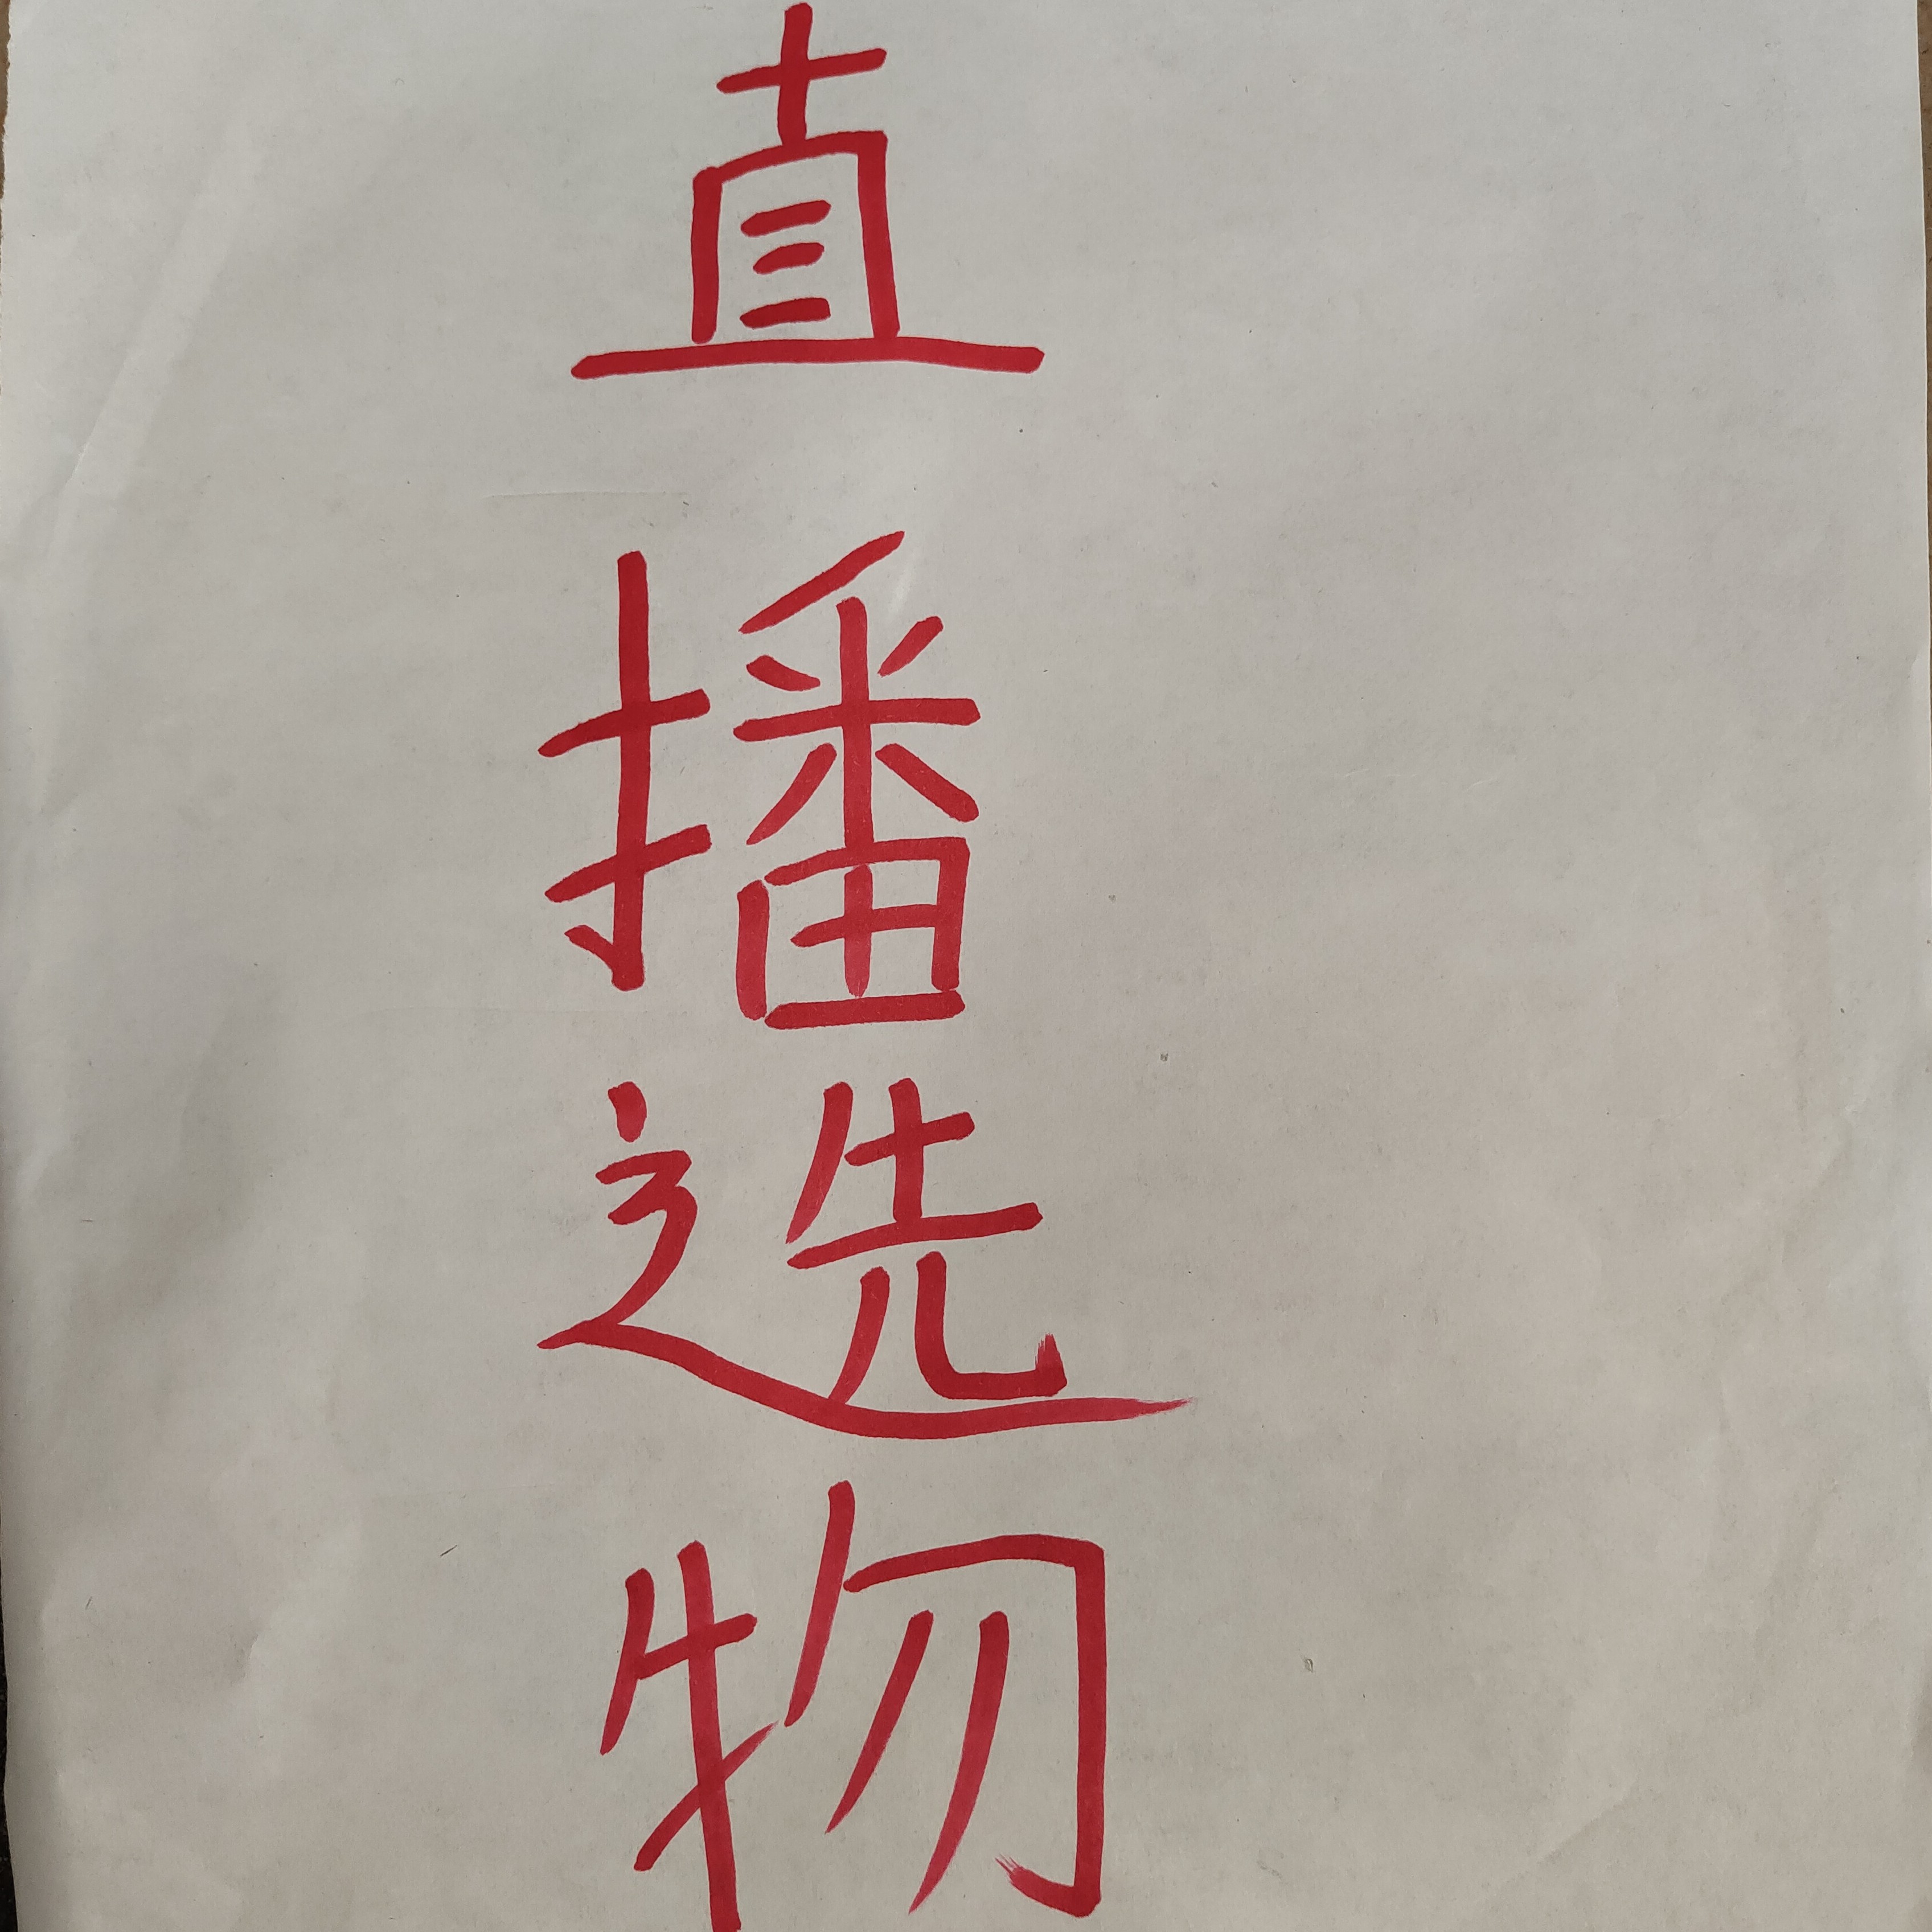 直播选物